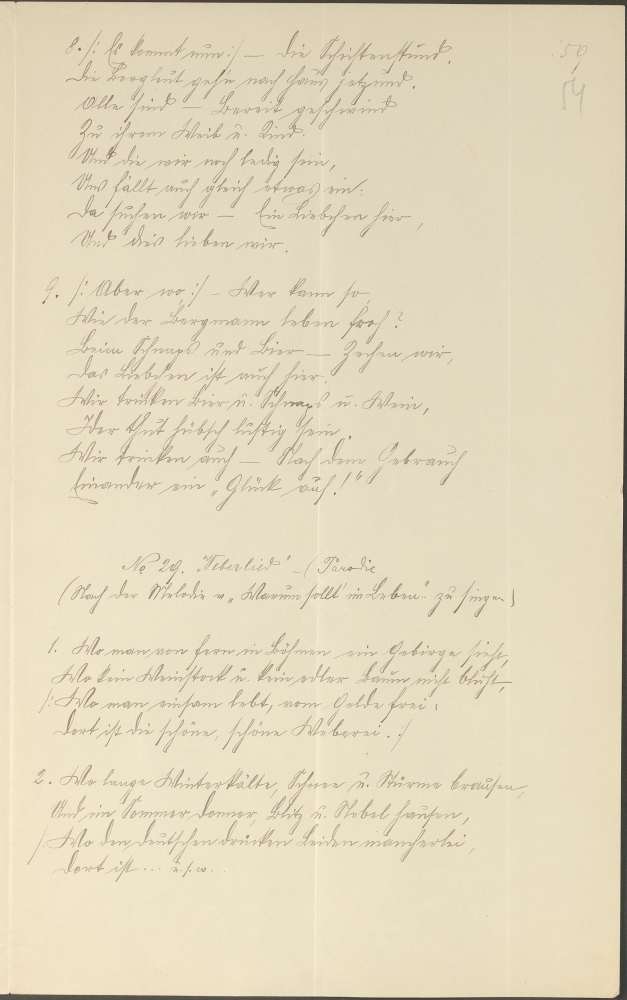 59
54
8. /: Es kommt nun :/ — die Schichtenstund.
Die Bergleut gehn nach Haus jetzund.
Alle sind — Bereit geschwind
Zu ihrem Weib u. Kind.
Und die wir noch ledig sein,
Uns fällt auch gleich etwas ein:
Da suchen wir — Ein Liebchen hier,
Und dies lieben wir.
9. /: Aber wo :/ — Wer kann so,
Wie der Bergmann leben froh?
Beim Schnaps und Bier — Zechen wir,
Das Liebchen ist auch hier.
Wir trinken Bier u. Schnaps u. Wein,
Jeder thut hübsch lustig sein.
Wir trinken auch — Nach dem Gebrauch
Einander ein „Glück auf!"
No 29. "Weberlied" - (Parodie
(Nach der Melodie v. „Warum sollt' im Leben" zu singen)
1. Wo man von fern in Böhmen ein Gebirge sieht,
Wo kein Weinstock u. kein edler Baum nicht blüht,
/: Wo man einsam lebt, vom Gelde frei:
Dort ist die schöne, schöne Weberei. :/
2. Wo lange Winterkälte, Schnee u. Stürme brausen,
Und im Sommer Donner, Blitz u. Nebel hausen,
/: Wo den Deutschen drücken Leiden mancherlei,
Dort ist ... u. s. w. ..